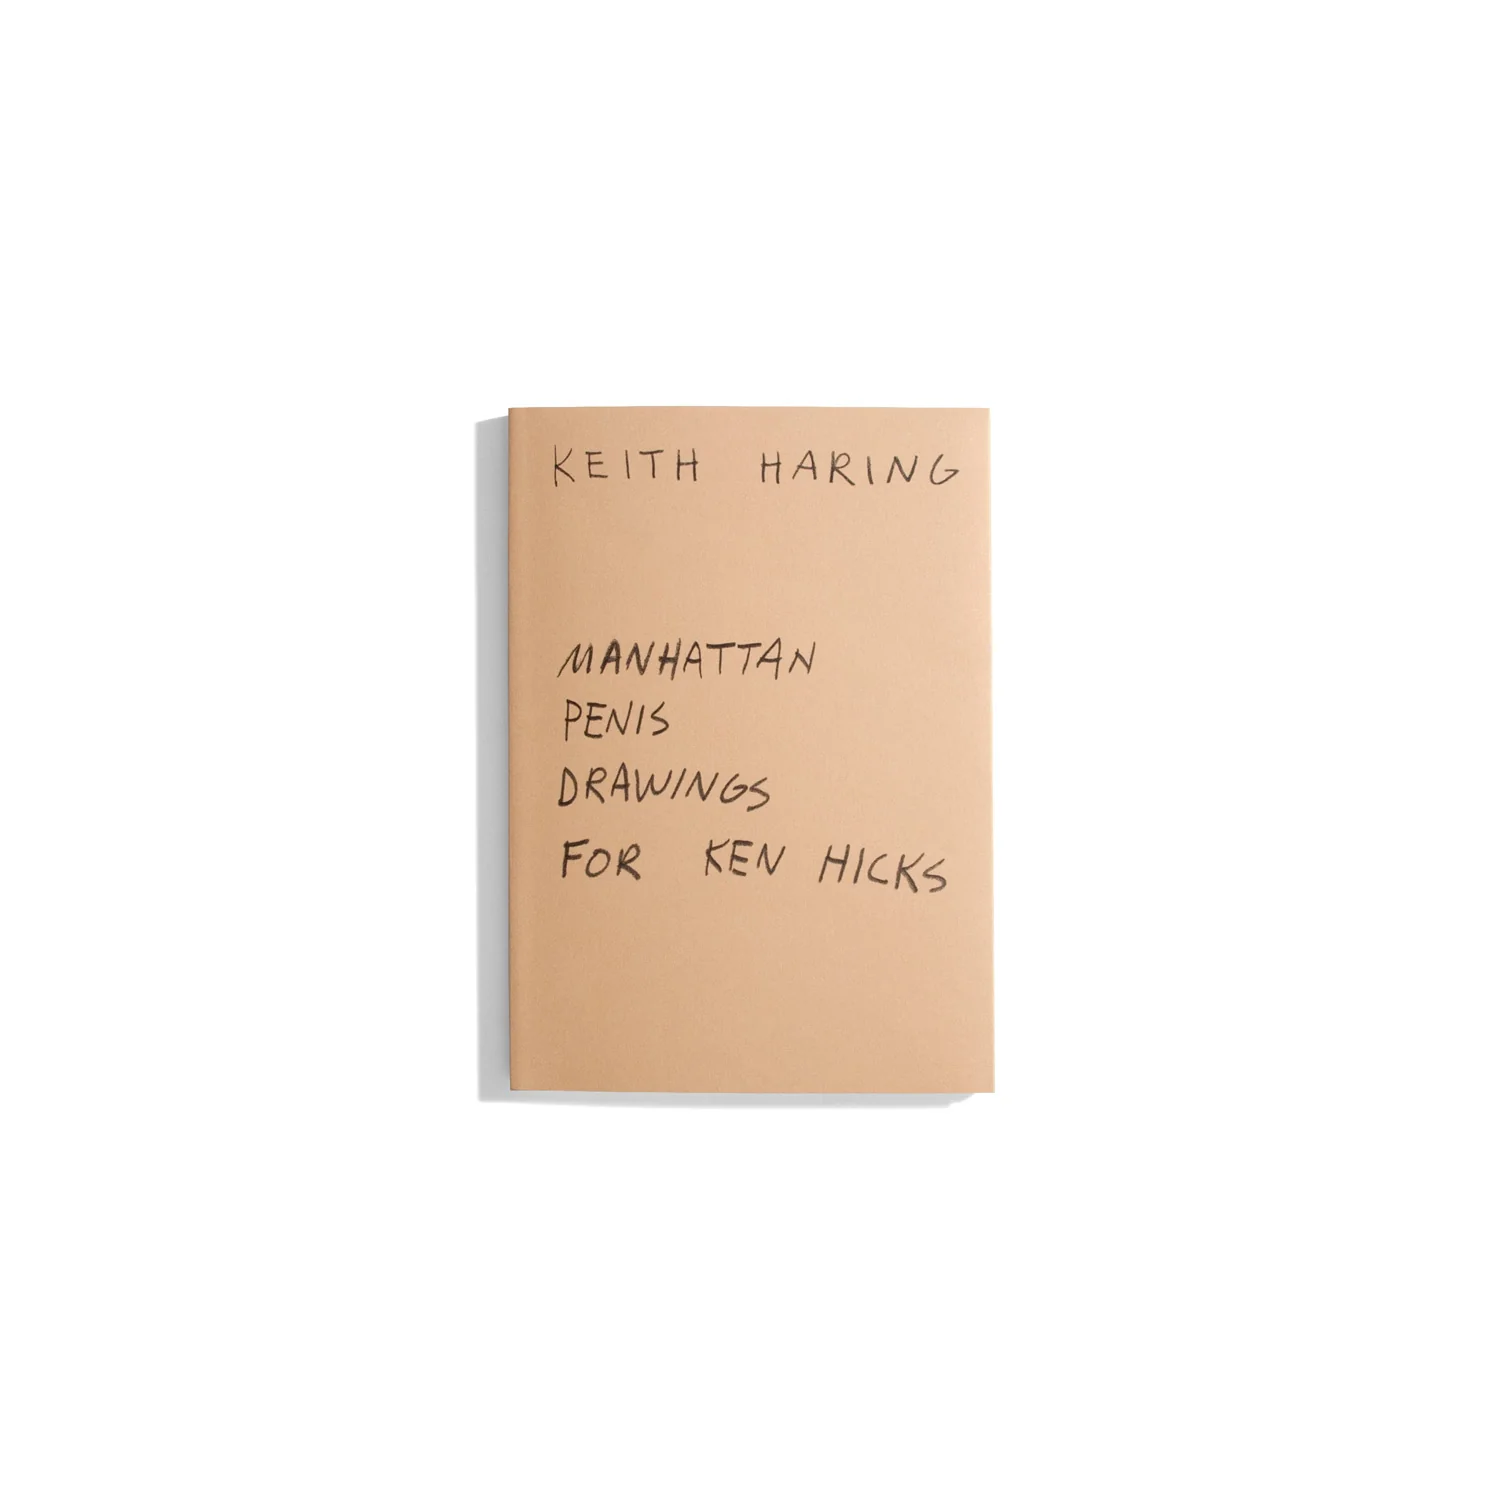 KEITH HARING
MANHATTAN
PENIS
DRAWINGS
FOR KEN HICKS